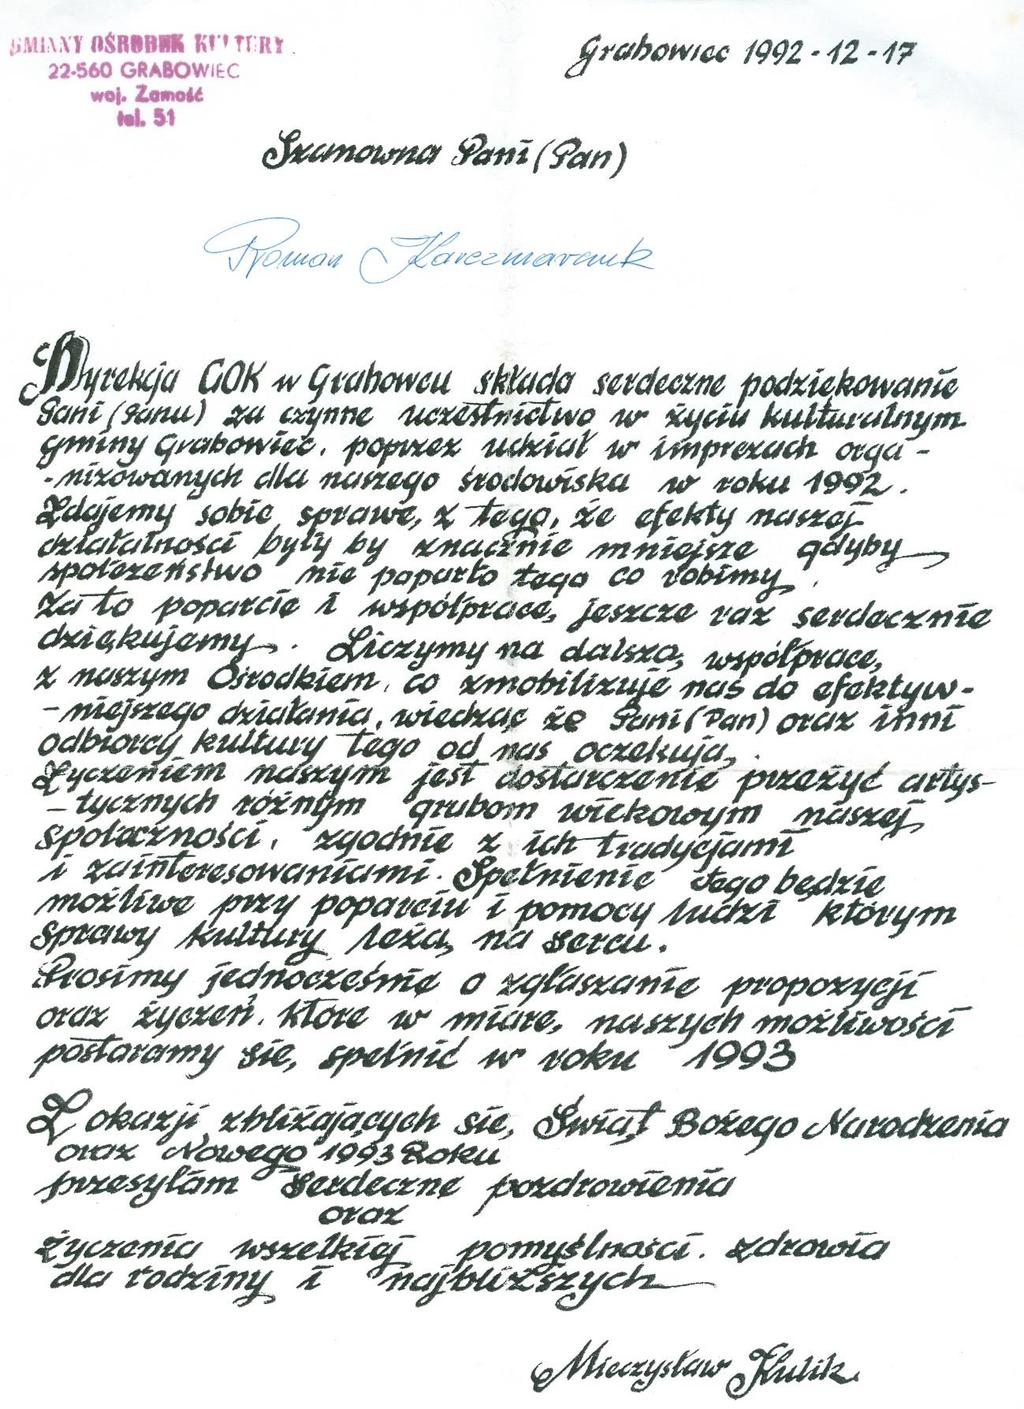 GMINNY OŚRODEK KULTURY
22-560 GRABOWIEC
woj. Zamość
tel. 51
Grabowiec 1992-12-17
Szanowna Pani (Pan)
Roman Karczmarczuk
Dyrekcja GOK w Grabowcu składa serdeczne podziękowanie
Pani (Panu) za czynne uczestnictwo w życiu kulturalnym
gminy Grabowiec, poprzez udział w imprezach orga-
-nizowanych dla naszego środowiska w roku 1992.
Zdajemy sobie sprawę, z tego, że efekty naszej
działalności były by znacznie mniejsze gdyby
społeczeństwo nie poparło tego co robimy.
Za to poparcie i współpracę, jeszcze raz serdecznie
dziękujemy. Liczymy na dalszą współpracę,
z naszym Ośrodkiem, co zmobilizuje nas do efektyw-
-niejszego działania, wiedząc że Pani (Pan) oraz inni
odbiorcy kultury tego od nas oczekują.
Życzeniem naszym jest dostarczenie przeżyć artys-
-tycznych różnym grubom wiekowym naszej
społeczności, zgodnie z ich tradycjami
i zainteresowaniami. Spełnienie tego będzie
możliwe przy poparciu i pomocy ludzi którym
sprawy kultury leżą na sercu.
Prosimy jednocześnie o zgłaszanie propozycji
oraz życzeń, które w miarę, naszych możliwości
postaramy się, spełnić w roku 1993
Z okazji zbliżających się, Świąt Bożego Narodzenia
oraz Nowego 1993 Roku
przesyłam serdeczne pozdrowienia
oraz
życzenia wszelkiej pomyślności, zdrowia
dla rodziny i najbliższych
Mieczysław Kulik